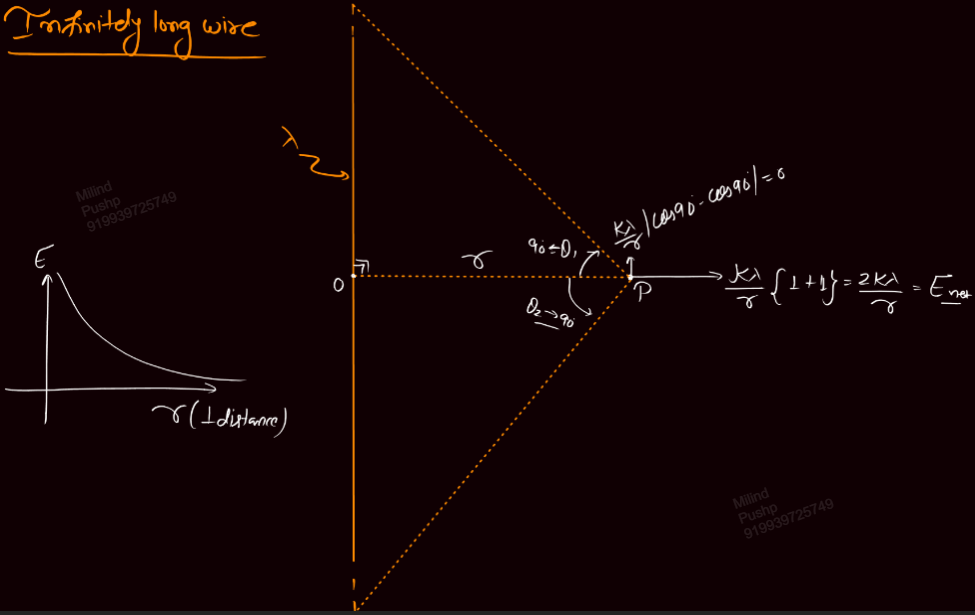 Infinitely long wire
λ
Milind
Pushp
919939725749
E
r (⊥ distance)
O
r
90 ← θ₁
θ₂ → 90
Kλ/r |cos90 - cos90| = 0
P
Kλ/r {1+1} = 2Kλ/r = E net
Milind
Pushp
919939725749